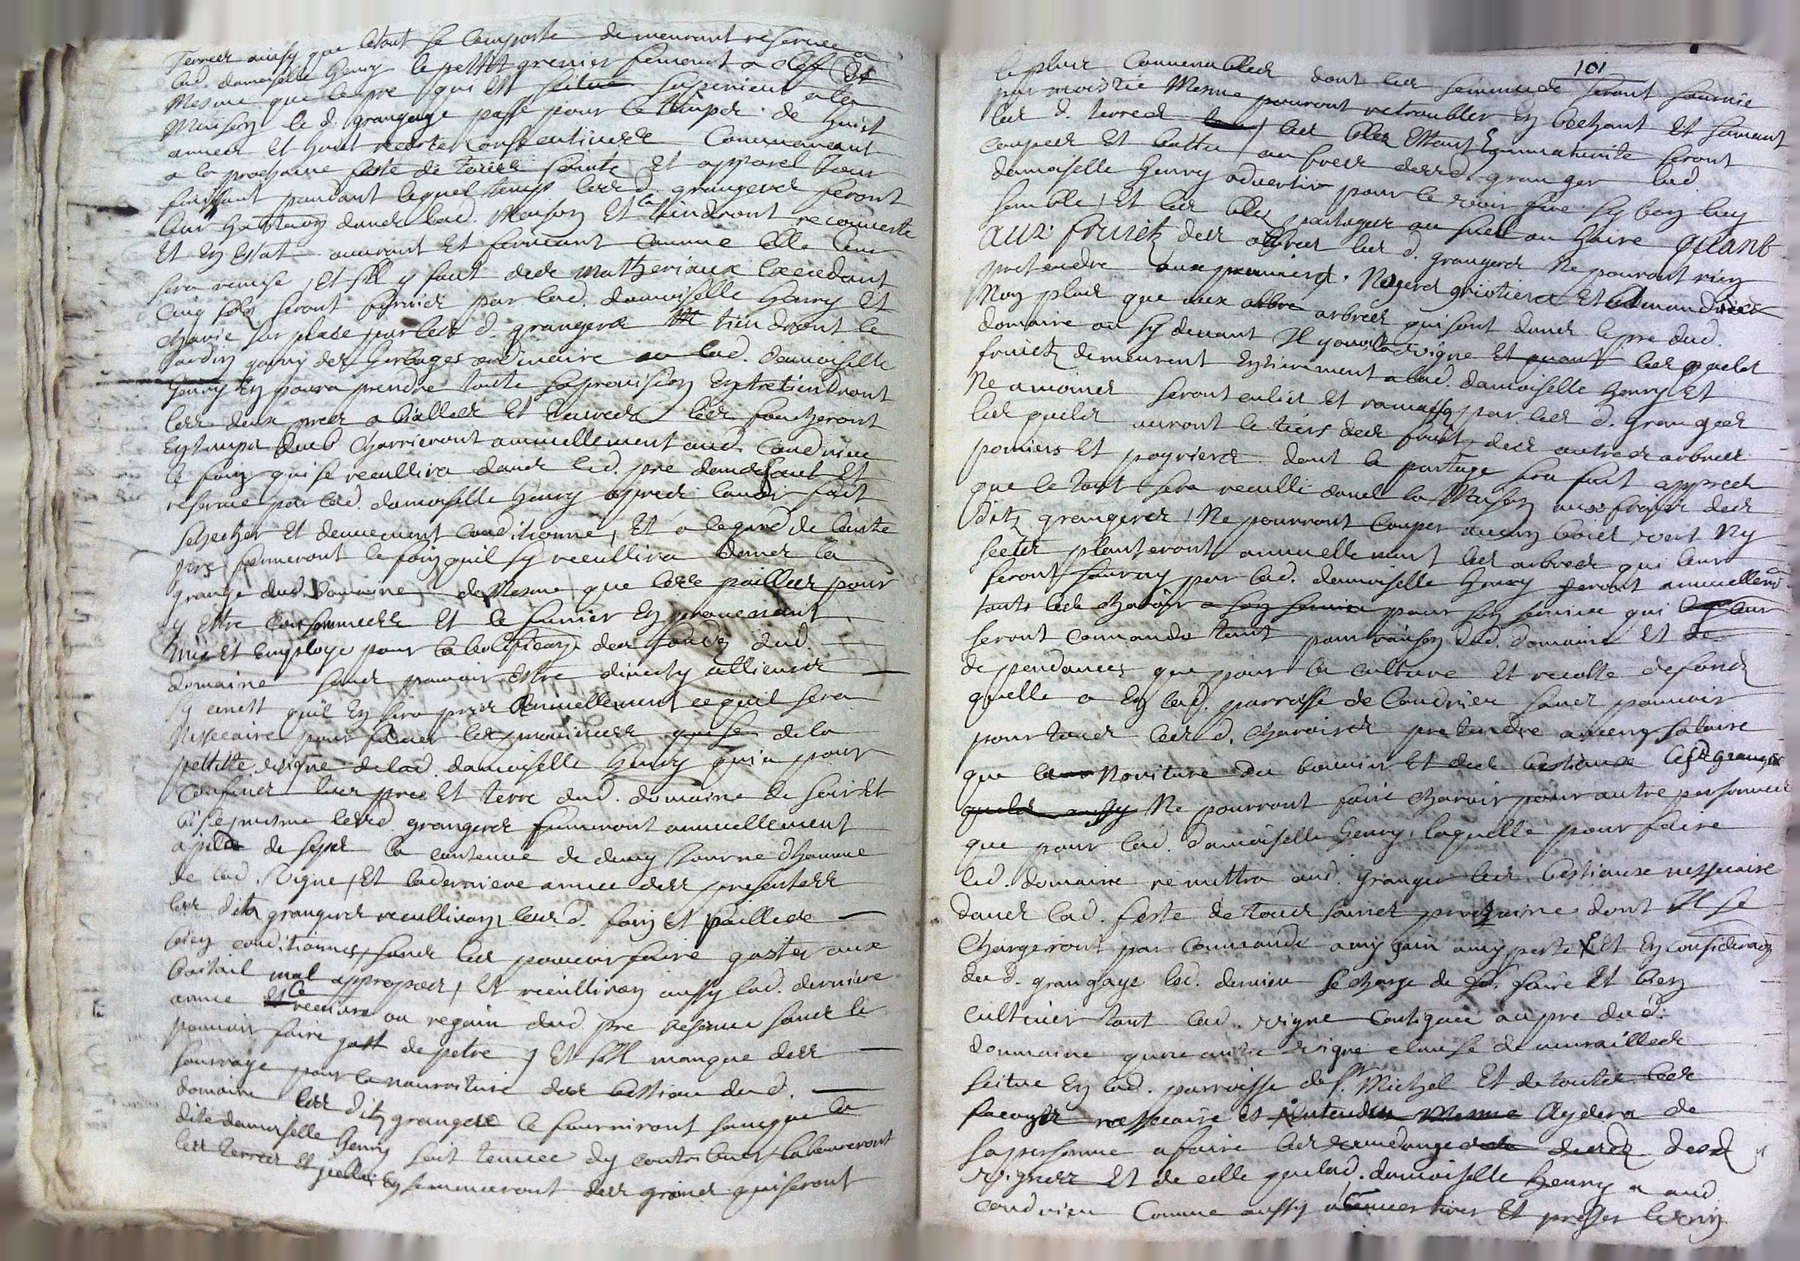 Terres ainsy que letout se comporte demeurant reservée a
lad. damoiselle Henry le petit grenier fermant a clef Et
Mesme que le pre qui est scitué superieur a la
Maison le d. grangeage passé pour le temps de huit
années Et huit recoltes consecutives Commencant
a la prochaine feste de toues saints Et apparel Jour
finissant pandant lequel temps lesd. grangers feront
leur habitaon dans lad. Maison Et la tiendront recouverte
Et En Estat ouvrant Et fermant comme Elle leur
sera remise, Et s'Il y faut des matheriaux Excedant
Cinq sols seront fournis par lad. damoiselle Henry Et
chariés sur place par les d. grangers tiendront le
Jardin garny des herbages ordinaire ou lad. damoiselle
Henry En pourra prendre toute sa provision Entretiendront
les deux prés a biallés Et les faucheront
En temps dud charrieront annuellement aud. Condrieu
le foin qui se recullira dans led. pré
reservé par lad. damoiselle Henry apres lavoir fait
secher Et deuement conditionné, Et a legard de lautre
pré fermeront le foin quil sy recullira dans la
grange dud. Domaine de Mesme que les pailles pour
y Estre consommées Et le fumier En provenant
mis Et Employé pour la des fonds dud.
domaine sans pouvoir Estre diverty allieurs
sy ce nest quil En sera pris annuellement ce quil sera
Nessecaire pour fumer les de la
petitte vigne de lad. damoiselle Henry quia pour
Confins les pré Et terre dud. domaine de soir Et
bise, mesme lesd grangers fumeront annuellement
a la contenue de deux Journé dhomme
de lad. vigne, Et la derniere année des presentes
les dits grangers recullirons leurs d. foin Et pailles
bien conditionnés, sans les pouvoir faire gaster aux
baitail mal appropos, Et recullirons aussy lad. derniere
année le revivre ou regain dud pre reservé sans le
pouvoir faire de petre, Et s'Il manque des
fourrage pour la nourriture des bestiau dud.
domaine les dits grangers le fourniront sans que la
dite damoiselle Henry soit tenue dy contribuer laboureront
les terres Et Ensemenceront des grains qui seront

101
le plus Convenables dont les semences seront fournie
par moistié Mesme pourront retroubler En bechant Et fumant
les d. terres, les bles Estant En maturité seront
coupés Et battu, aux frees desd. granger lad.
damoiselle Henry advertir pour le voir fere sy bon luy
semble, Et les bles partager au suel ou haire quant
aux fruicts des albres les d. grangers ne pourront rien
pretendre aux Noyers griotiers Et
Non plus que aux arbres qui sont dans le pre dud.
domaine ou cy devant Il y avoit vigne les quels
fruicts demeurent Entierement a lad. damoiselle Henry Et
Neamoins seront culis Et ramassy par les d. granger
les quels auront le tiers des fruits des autres arbres
pomiers Et poyriers dont le partage sera fait appres
que le tout sera reculli dans la Maison aux frais des
dits grangers, Ne pourront couper aucun bois vert Ny
secter planteront annuellement les arbres qui leur
seront fourny par lad. damoiselle Henry feront annuellemt
touts les charois pour son service qui leur
seront comandé tant pour raison dud. domaine Et de
dependances que pour la culture Et recolte des fonds
quelle a En lad. parroisse de Condrieu sans pouvoir
pour tous lesd. charois pretendre aucung salaire
que Noriture du bouvier Et des bestiaux lesd grangers
Ne pourront faire charoir pour autre personnes
que pour lad. damoiselle Henry, laquelle pour faire
led. domaine remettra aud. Granger les bestiaux nessecaire
dans lad. feste de tous saints prochaine dont Il se
Chargeront par Commande a my gain a my perte Et En consideraon
du d. grangage led. dernieu se charge de faire Et bien
cultiver tant lad. vigne contigue au pre dud.
domaine qune autre vigne clause de murailles
scitue En lad. parroisse de St. Michel Et de toutes les
facons nessecaire Mesme Aydera de
sa personne a faire les vandange desd.
vignes Et de celle que lad. damoiselle Henry a aud.
Condrieu Comme aussy a Et presser le vin